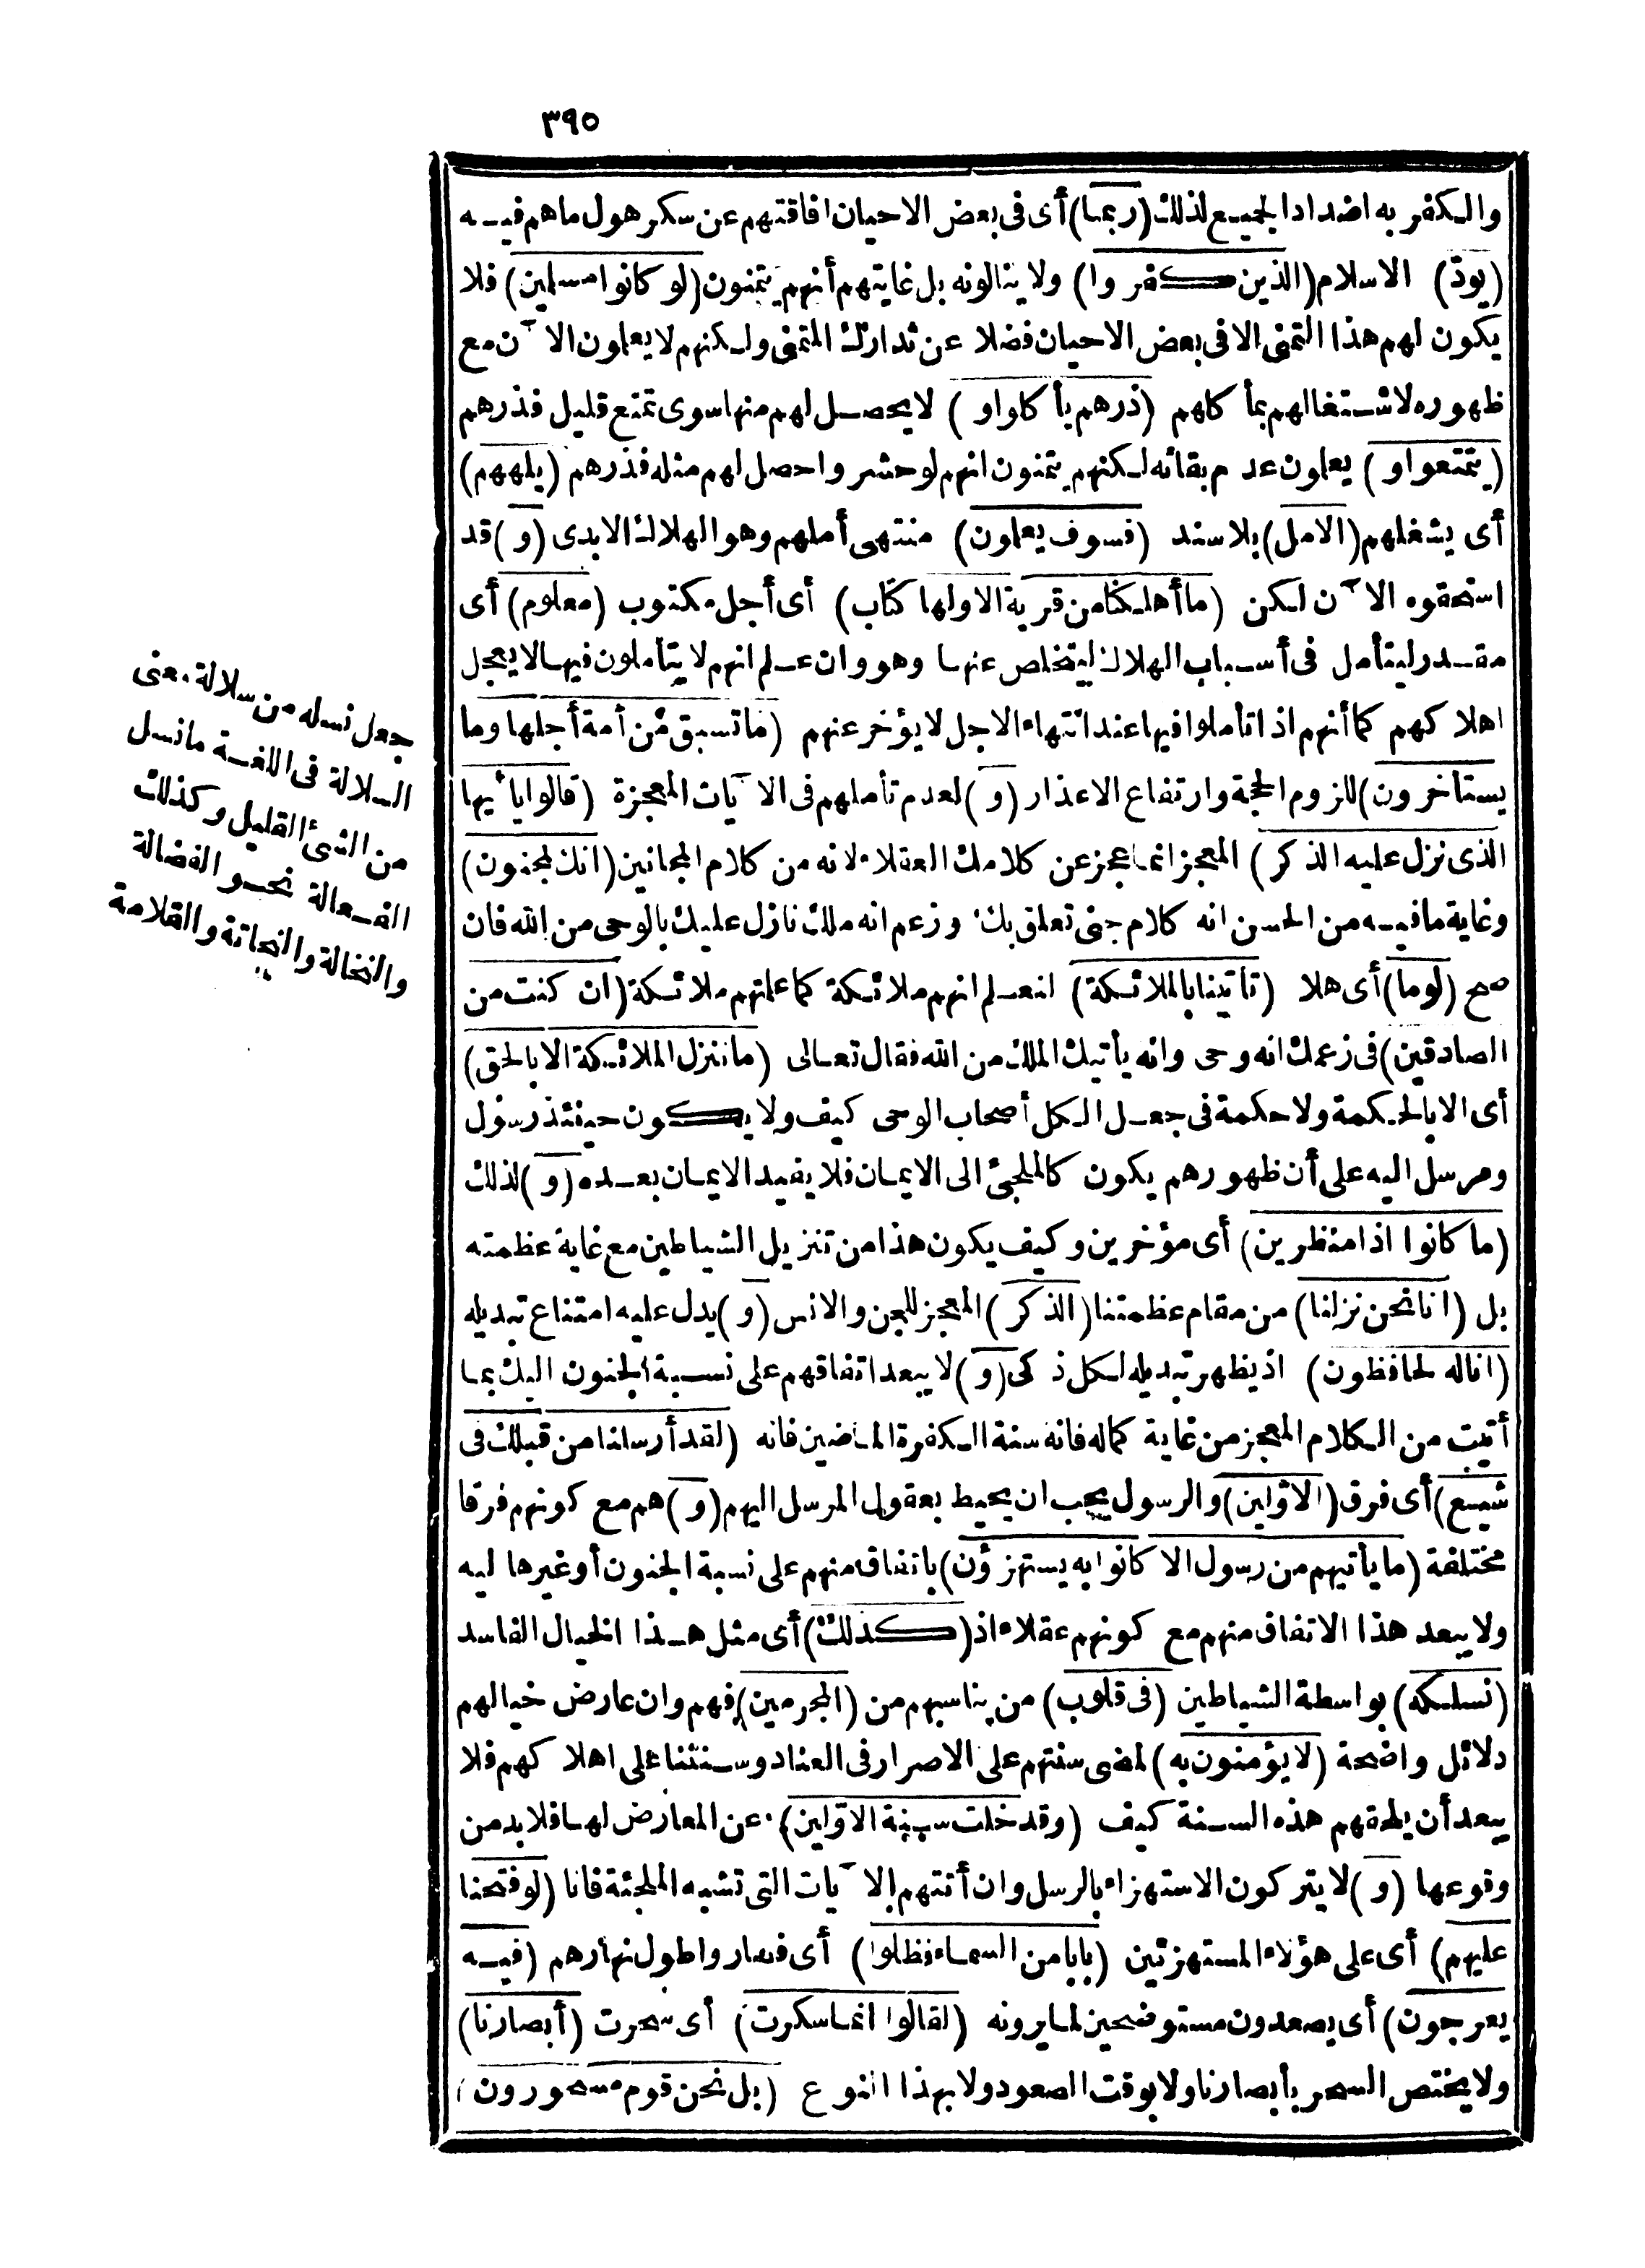 ٣٩٥
والكفر به اضداد الجميع لذلك (ربما) أى فى بعض الاحيان افاقتهم عن سكر هول ما هم فيه
(يودّ) الاسلام (الذين كفروا) ولا ينالونه بل غايتهم أنهم يتمنون (لو كانوا مسلمين) فلا
يكون لهم هذا التمنى الا فى بعض الاحيان فضلا عن تدارك المتمنى ولكنهم لا يعلمون الآن مع
ظهوره لاشتغالهم بمأكلهم (ذرهم يأكلوا و) لا يحصل لهم منها سوى تمتع قليل فذرهم
(يتمتعوا و) يعلمون عدم بقائه لكنهم يتمنون انهم لو حشروا حصل لهم مثله فذرهم (يلههم)
أى يشغلهم (الامل) بلا سند (فسوف يعلمون) منتهى أملهم وهو الهلاك الابدى (و) قد
استحقوه الآن لكن (ما أهلكنا من قرية الا ولها كتاب) أى أجل مكتوب (معلوم) أى
مقدر ليتأمل فى أسباب الهلاك ليتخلص عنها وهو وان علم انهم لا يتأملون فيها لا يعجل
اهلاكهم كما أنهم اذا تأملوا فيها عند انتهاء الاجل لا يؤخر عنهم (ما تسبق من أمة أجلها وما
يستأخرون) للزوم الحجة وارتفاع الاعذار (و) لعدم تأملهم فى الآيات المعجزة (قالوا يا أيها
الذى نزل عليه الذكر) المعجز انما عجز عن كلامك العقلاء لانه من كلام المجانين (انك لمجنون)
وغاية ما فيه من الحسن انه كلام جنى تعلق بك وزعم انه ملك نازل عليك بالوحى من الله فان
صح (لوما) أى هلا (تأتينا بالملائكة) لنعلم انهم ملائكة كما علمتهم ملائكة (ان كنت من
الصادقين) فى زعمك انه وحى وانه يأتيك الملك من الله فقال تعالى (ما ننزل الملائكة الا بالحق)
أى الا بالحكمة ولا حكمة فى جعل الكل أصحاب الوحى كيف ولا يكون حينئذ رسول
ومرسل اليه على أن ظهورهم يكون كالملجئ الى الايمان فلا يفيد الايمان بعده (و) لذلك
(ما كانوا اذا منظرين) أى مؤخرين وكيف يكون هذا من تنزيل الشياطين مع غاية عظمته
بل (انا نحن نزلنا) من مقام عظمتنا (الذكر) المعجز للجن والانس (و) يدل عليه امتناع تبديله
(انا له لحافظون) اذ يظهر تبديله لكل ذكى (و) لا يبعد اتفاقهم على نسبة الجنون اليك بما
أتيت من الكلام المعجز من غاية كماله فانه سنة الكفرة الماضين فانه (لقد أرسلنا من قبلك فى
شيع) أى فرق (الاوّلين) والرسول يجب ان يحيط بعقول المرسل اليهم (و) هم مع كونهم فرقا
مختلفة (ما يأتيهم من رسول الا كانوا به يستهزؤن) باتفاق منهم على نسبة الجنون أو غيرها ليه
ولا يبعد هذا الاتفاق منهم مع كونهم عقلاء اذ (كذلك) أى مثل هذا الخيال الفاسد
(نسلكه) بواسطة الشياطين (فى قلوب) من يناسبهم من (المجرمين) فهم وان عارض خيالهم
دلائل واضحة (لا يؤمنون به) لمضى سنتهم على الاصرار فى العناد وسنتنا على اهلاكهم فلا
يبعد أن يلحقهم هذه السنة كيف (وقد خلت سنة الاوّلين) عن المعارض لها فلا بد من
وقوعها (و) لا يتركون الاستهزاء بالرسل وان أتتهم بالآيات التى تشبه الملجئة فانا (لو فتحنا
عليهم) أى على هؤلاء المستهزئين (بابا من السماء فظلوا) أى فصاروا طول نهارهم (فيه
يعرجون) أى يصعدون مستوضحين لما يرونه (لقالوا انما سكرت) أى سحرت (أبصارنا)
ولا يختص السحر بأبصارنا ولا بوقت الصعود ولا بهذا النوع (بل نحن قوم مسحورون)
جعل نسله من سلالة معنى
السلالة فى اللغة ما نسل
من الشئ القليل وكذلك
الفعالة نحو الفضالة
والنخالة والنحاتة والقلامة